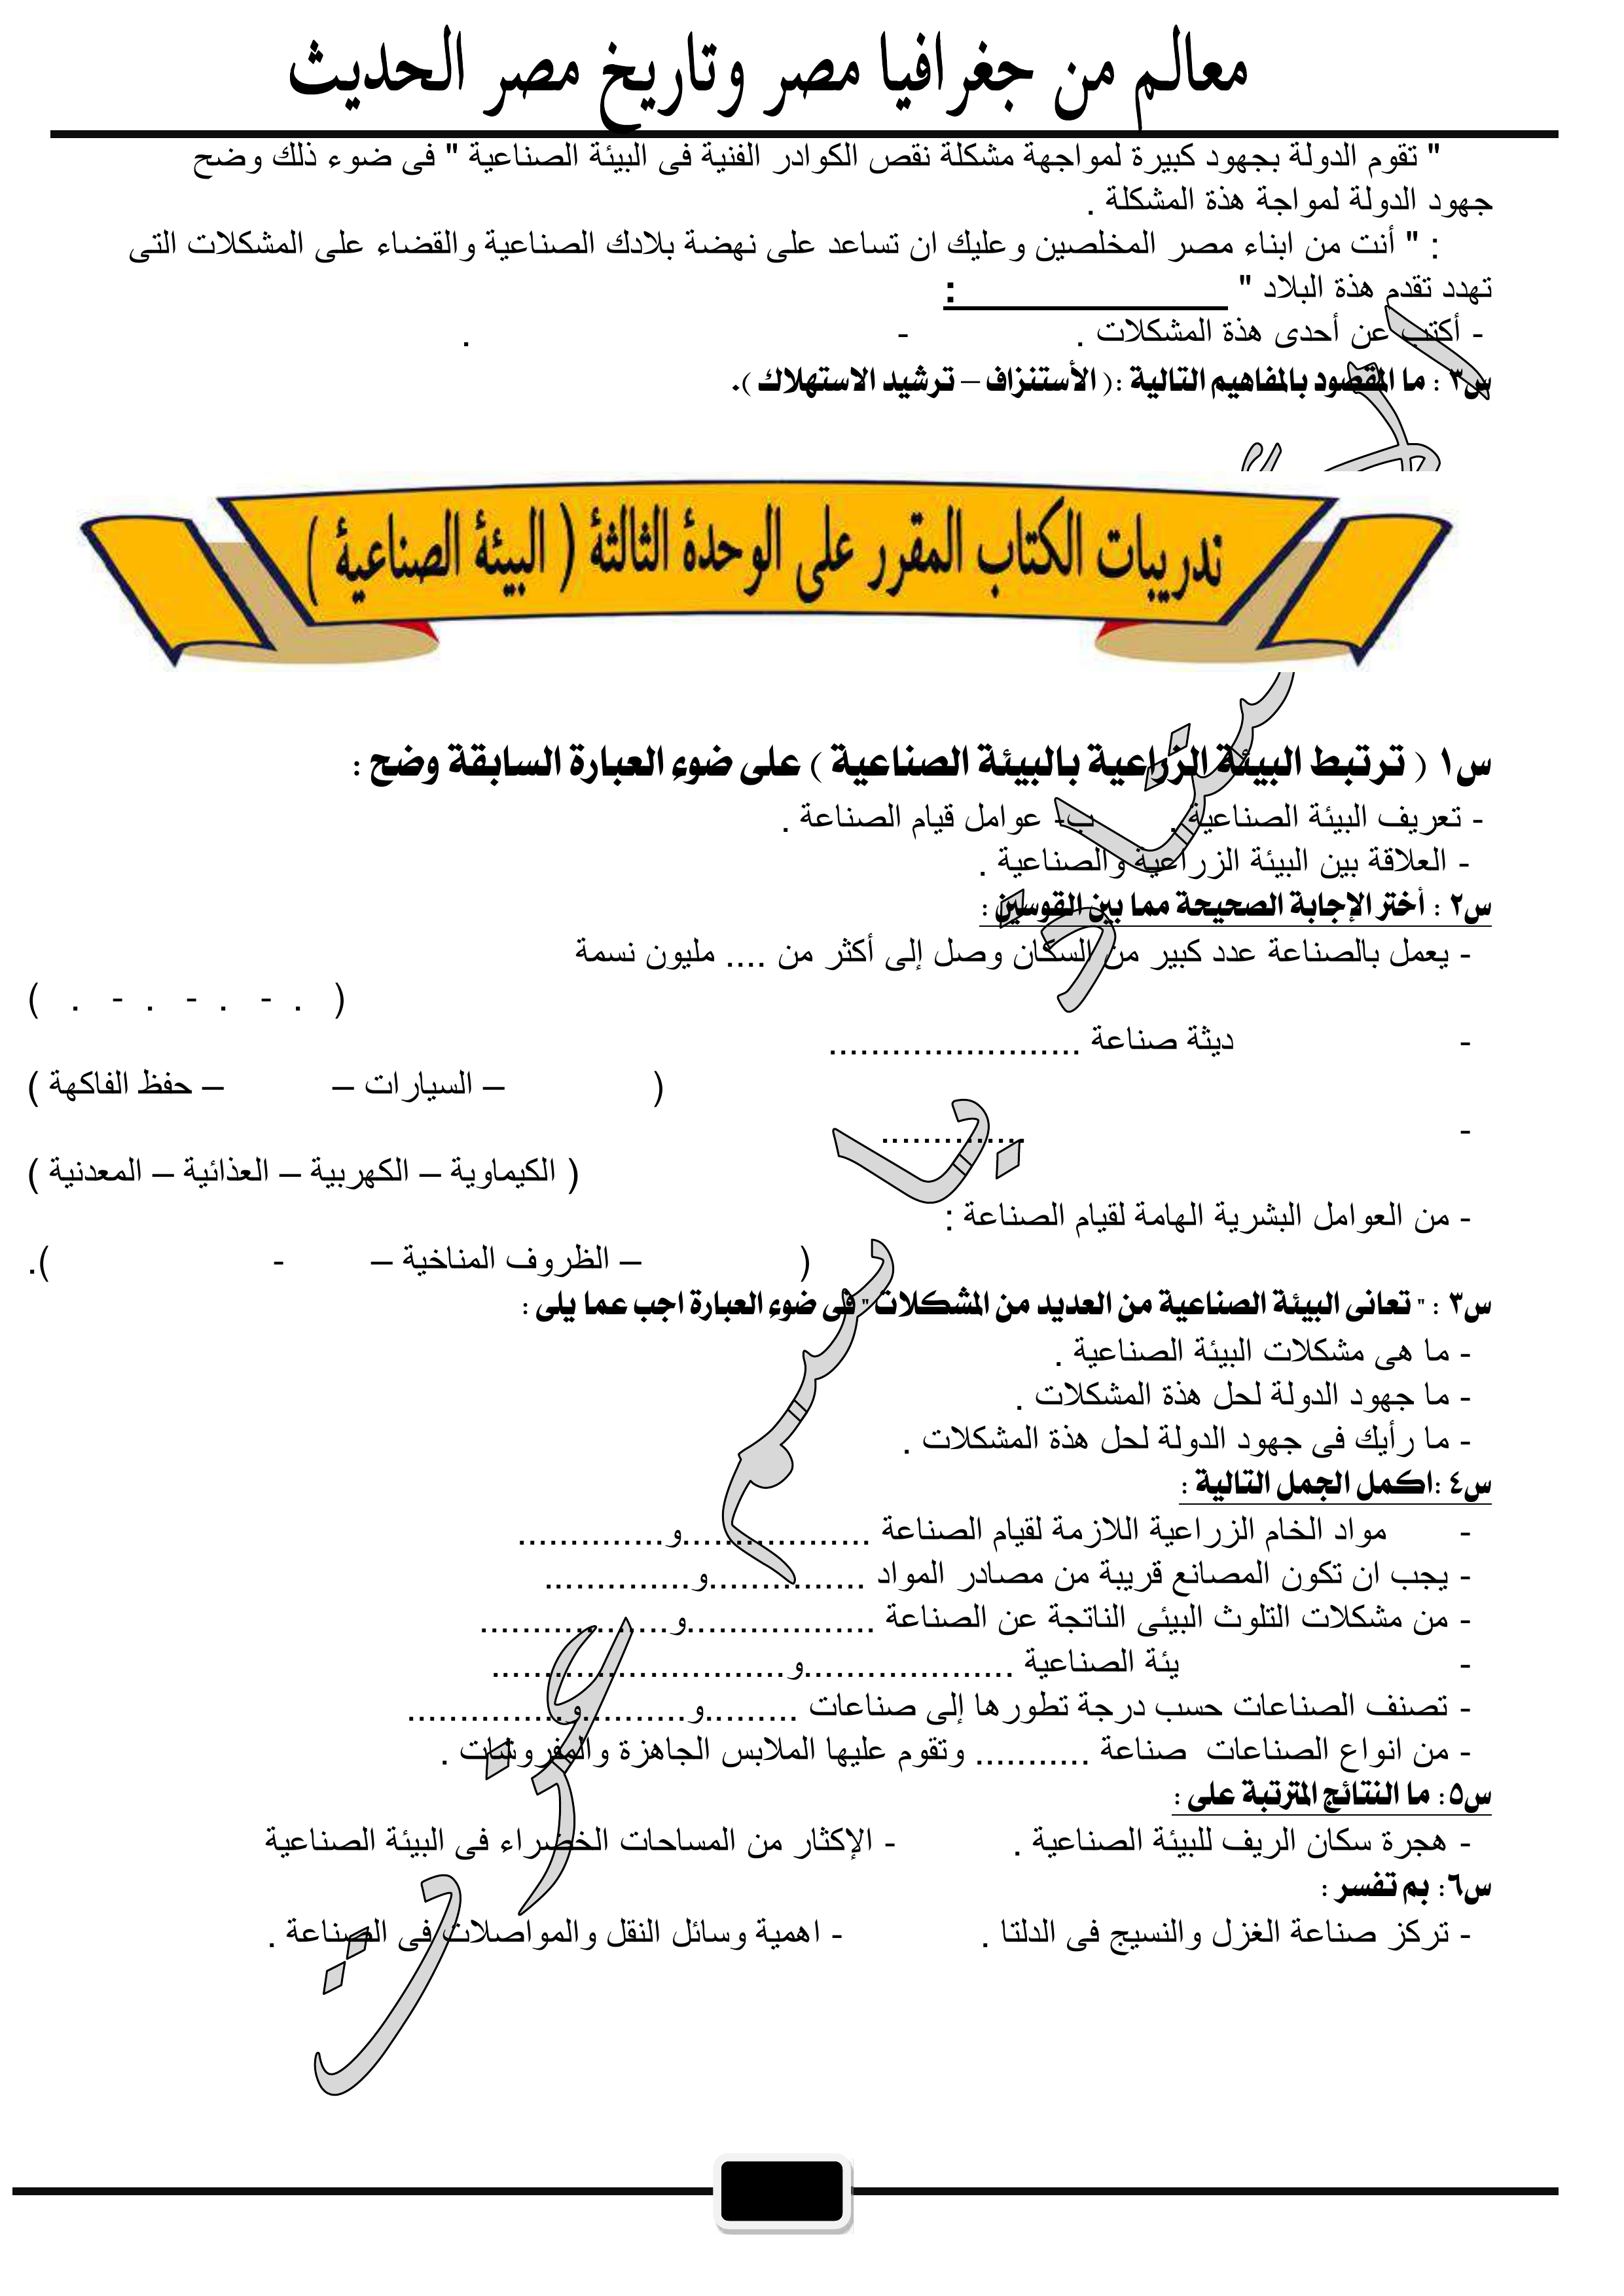 معالم من جغرافيا مصر وتاريخ مصر الحديث
" تقوم الدولة بجهود كبيرة لمواجهة مشكلة نقص الكوادر الفنية فى البيئة الصناعية " فى ضوء ذلك وضح
جهود الدولة لمواجة هذة المشكلة .
: " أنت من ابناء مصر المخلصين وعليك ان تساعد على نهضة بلادك الصناعية والقضاء على المشكلات التى
تهدد تقدم هذة البلاد " :
- أكتب عن أحدى هذة المشكلات . - .
س٣ : ما المقصود بالمفاهيم التالية :( الأستنزاف – ترشيد الاستهلاك ).
تدريبات الكتاب المقرر على الوحدة الثالثة ( البيئة الصناعية )
س١ ( ترتبط البيئة الزراعية بالبيئة الصناعية ) على ضوء العبارة السابقة وضح :
- تعريف البيئة الصناعية . ب- عوامل قيام الصناعة .
- العلاقة بين البيئة الزراعية والصناعية .
س٢ : أختر الإجابة الصحيحة مما بين القوسين :
- يعمل بالصناعة عدد كبير من السكان وصل إلى أكثر من .... مليون نسمة
( . - . - . - . )
- ديثة صناعة ........................
( – السيارات – – حفظ الفاكهة )
- ..............
( الكيماوية – الكهربية – العذائية – المعدنية )
- من العوامل البشرية الهامة لقيام الصناعة :
( – الظروف المناخية – - ).
س٣ : " تعانى البيئة الصناعية من العديد من المشكلات " فى ضوء العبارة اجب عما يلى :
- ما هى مشكلات البيئة الصناعية .
- ما جهود الدولة لحل هذة المشكلات .
- ما رأيك فى جهود الدولة لحل هذة المشكلات .
س٤ :اكمل الجمل التالية :
- مواد الخام الزراعية اللازمة لقيام الصناعة ..................و..............
- يجب ان تكون المصانع قريبة من مصادر المواد ...............و..............
- من مشكلات التلوث البيئى الناتجة عن الصناعة ..................و..................
- يئة الصناعية ....................و............................
- تصنف الصناعات حسب درجة تطورها إلى صناعات .........و..........و...............
- من انواع الصناعات صناعة ........... وتقوم عليها الملابس الجاهزة والمفروشات .
س٥: ما النتائج المترتبة على :
- هجرة سكان الريف للبيئة الصناعية . - الإكثار من المساحات الخضراء فى البيئة الصناعية
س٦: بم تفسر :
- تركز صناعة الغزل والنسيج فى الدلتا . - اهمية وسائل النقل والمواصلات فى الصناعة .